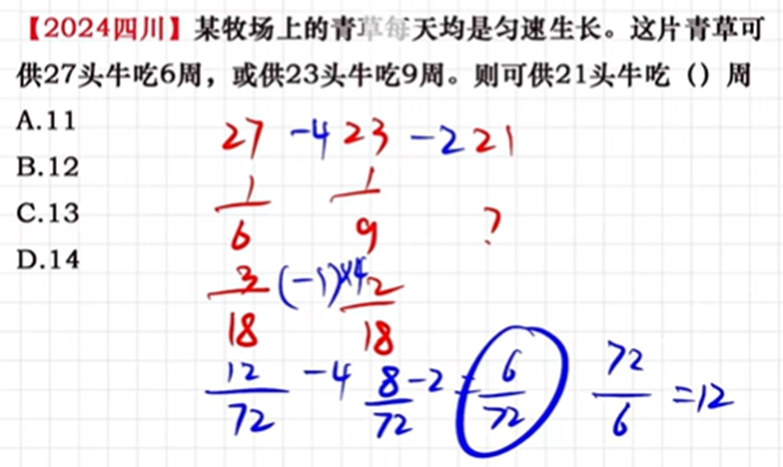 【2024四川】某牧场上的青草每天均是匀速生长。这片青草可
供27头牛吃6周，或供23头牛吃9周。则可供21头牛吃（）周
A.11
B.12
C.13
D.14
27 -4 23 -2 21
1/6 1/9 ?
3/18 (-1)×4 2/18
12/72 -4 8/72 -2 = 6/72 72/6 =12